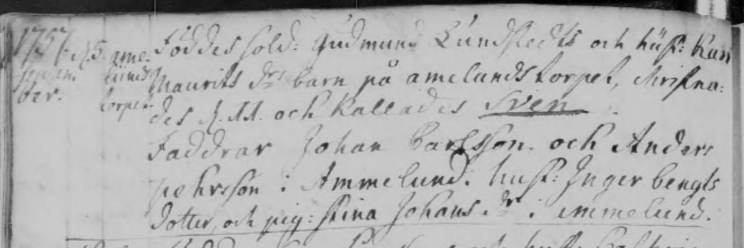 1757. d. 5. ame- Föddes sold: Gudmund Lundstedts och hust: Kari
septem lunds Maurits dr barn på amelunds torpet, Christna-
ber. torpet des d. 11. och kallades Sven
Faddrar Johan Carlsson och Anders
pehrsson i Ammelund. hust: Inger bengts
dotter, och pig: stina Johans dr i ammelund.